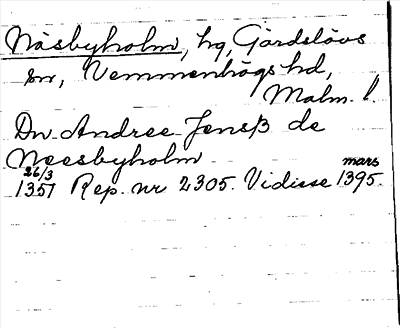 Näsbyholm, hg, Gärdslövs
sn, Vemmenhögs hd,
Malm. l.
Dn Andree Jensß de
Neesbyholm
26/3 1357 Rep. nr 2305. Vidisse mars 1395.